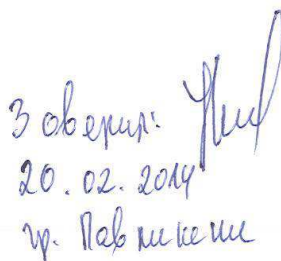 Заверил:
20.02.2014
гр. Павликени